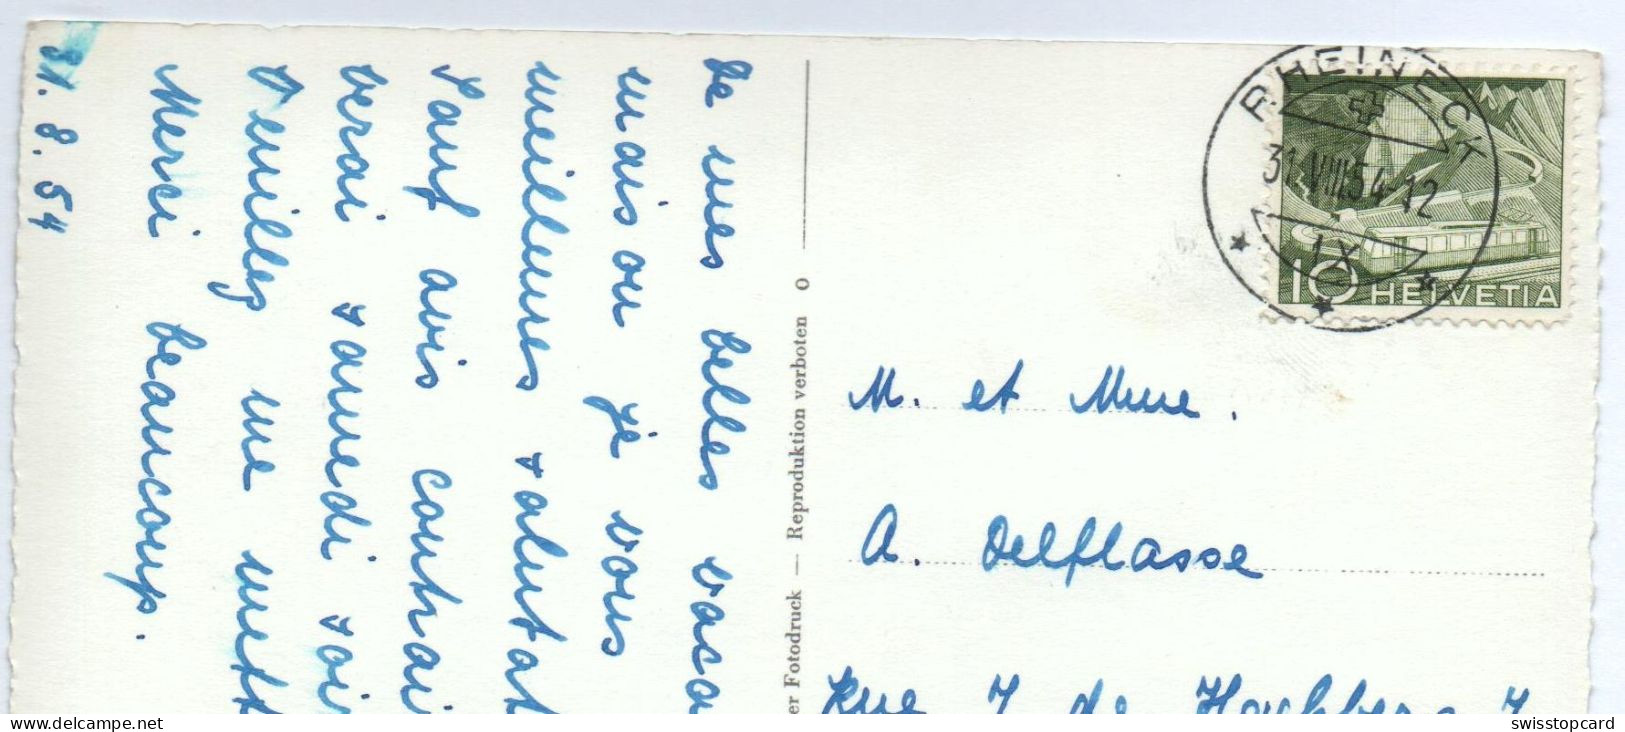 De mes belles vaca
maison je vous
meilleures salutat
Sauf avis contrai
verai samedi soi
Veuillez me mett
Merci beaucoup.
31. 8. 54
er Fotodruck — Reproduktion verboten o
RHEINECK
31.VIII.54-12
IX
10 HELVETIA
M. et Mme.
A. Delflasse
Rue J. de Hochberg 7
swisstopcard